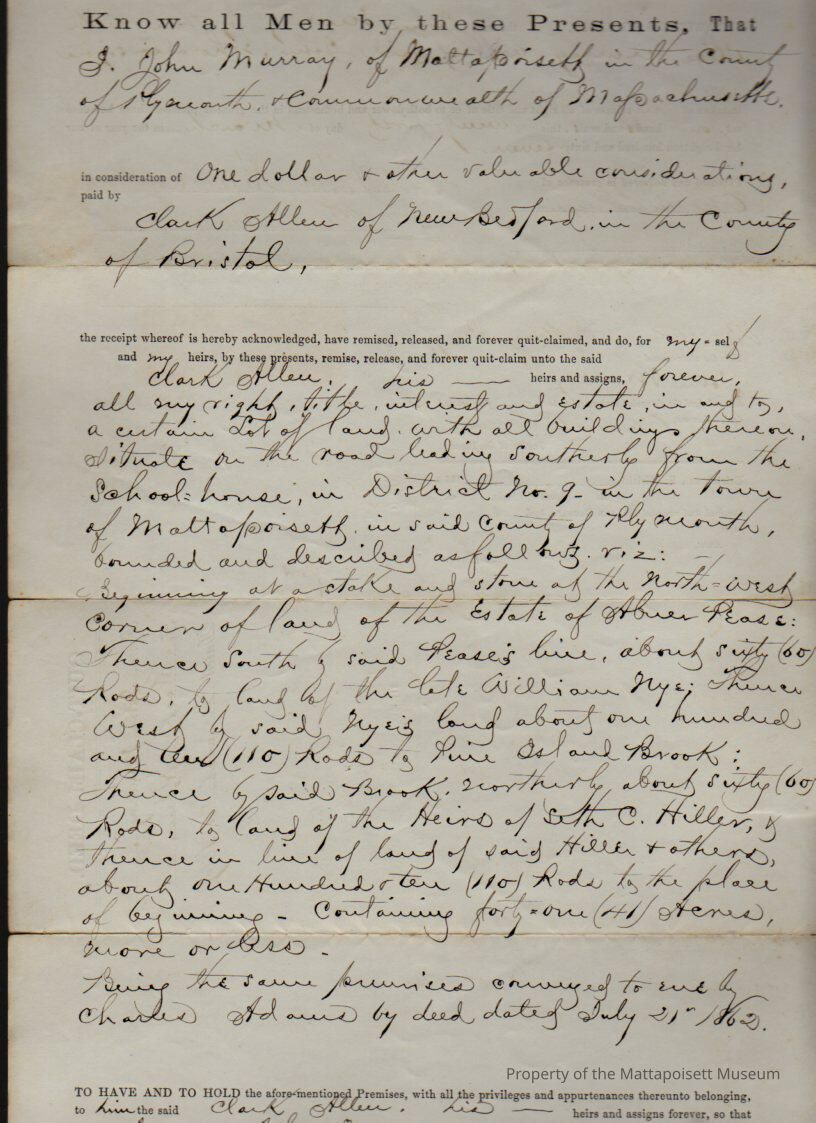 Know all Men by these Presents, That
I. John Murray, of Mattapoisett in the County
of Plymouth, & Commonwealth of Massachusetts.
in consideration of One dollar & other valuable considerations,
paid by
Clark Allen of New Bedford, in the County
of Bristol,
the receipt whereof is hereby acknowledged, have remised, released, and forever quit-claimed, and do, for my=self
and my heirs, by these presents, remise, release, and forever quit-claim unto the said
Clark Allen, his — heirs and assigns, forever,
all my right, title, interest and estate, in and to,
a certain Lot of land, with all buildings thereon,
situate on the road leading southerly from the
School=house, in District No. 9- in the town
of Mattapoisett, in said County of Plymouth,
bounded and described as follows. viz: -
Beginning at a stake and stone at the North=west
corner of land of the Estate of Abner Pease:
Thence South by said Pease's line, about sixty (60)
Rods, to land of the late William Nye; Thence
West by said Nye's land about one hundred
and ten (110) Rods to Pine Island Brook;
Thence by said Brook, Northerly about sixty (60)
Rods, to land of the Heirs of Seth C. Hiller, &
thence in line of land of said Hiller & others,
about one Hundred & ten (110) Rods to the place
of beginning - Containing forty=one (41) Acres,
more or less -
Being the same premises conveyed to me by
Charles Adams by deed dated July 21st 1862.
Property of the Mattapoisett Museum
TO HAVE AND TO HOLD the afore-mentioned Premises, with all the privileges and appurtenances thereunto belonging,
to him the said Clark Allen, his — heirs and assigns forever, so that